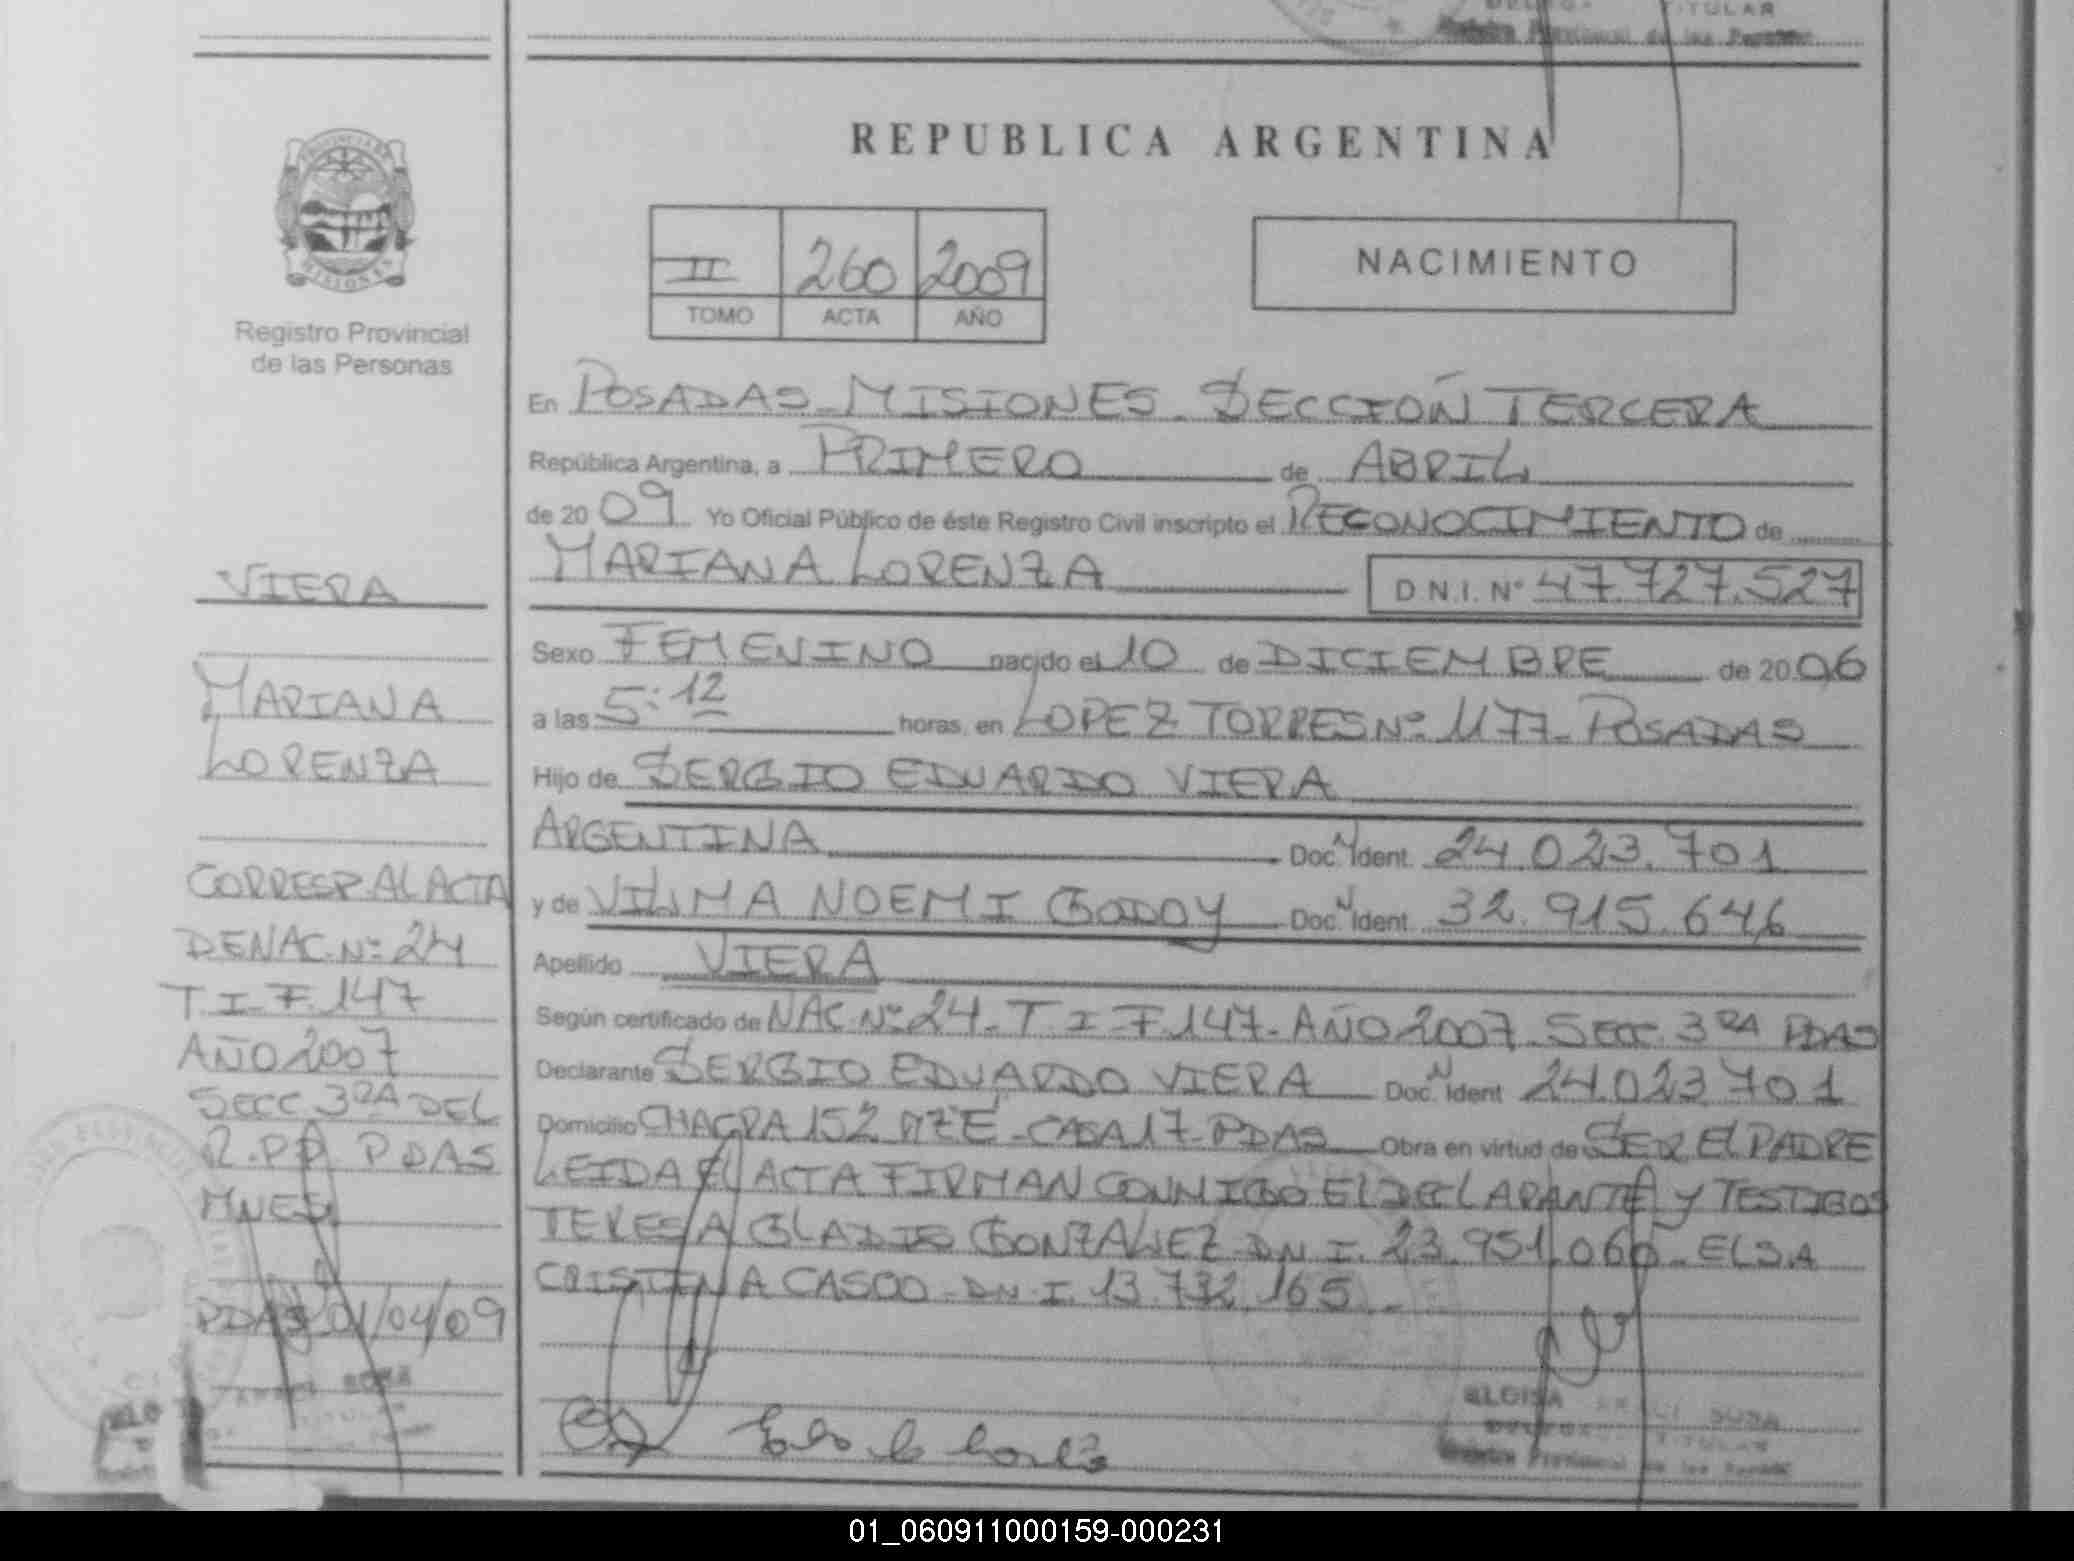 TITULAR
Registro Provincial de las Personas
REPUBLICA ARGENTINA
PROVINCIA DE
MISIONES
Registro Provincial
de las Personas
II 260 2009
TOMO ACTA AÑO
NACIMIENTO
En POSADAS - MISIONES - SECCIÓN TERCERA
República Argentina, a PRIMERO de ABRIL
de 2009 Yo Oficial Público de éste Registro Civil inscripto el RECONOCIMIENTO de
MARIANA LORENZA D.N.I. Nº 47.727.527
Sexo FEMENINO nacido el 10 de DICIEMBRE de 2006
a las 5:12 horas, en LOPEZ TORRES Nº: 1177 - POSADAS
Hijo de SERGIO EDUARDO VIERA
ARGENTINA Doc. N Ident. 24.023.701
y de VILMA NOEMI GODOY Doc. N Ident. 32.915.646
Apellido VIERA
Según certificado de NAC. Nº: 24 - T. I - F. 147 - AÑO 2007 - SECC. 3RA PDAS
Declarante SERGIO EDUARDO VIERA Doc. N Ident 24.023.701
Domicilio CHACRA 152 MZ E - CASA 17 - PDAS Obra en virtud de SER EL PADRE
LEIDA EL ACTA FIRMAN CONMIGO EL DECLARANTE Y TESTIGOS
TERESA GLADIS GONZALEZ DNI. 23.951.066 - ELSA
CRISTINA CASCO - DNI. 13.732.165 -
VIERA
MARIANA
LORENZA
CORRESP. AL ACTA
DE NAC. Nº: 24
T. I - F. 147
AÑO 2007
SECC. 3RA DEL
R.P.P. PDAS
MNES
PDAS 01/04/09
SOSA
TITULAR
ELOISA ARACLI SOSA
TITULAR
Registro Provincial de las Personas
01_060911000159-000231